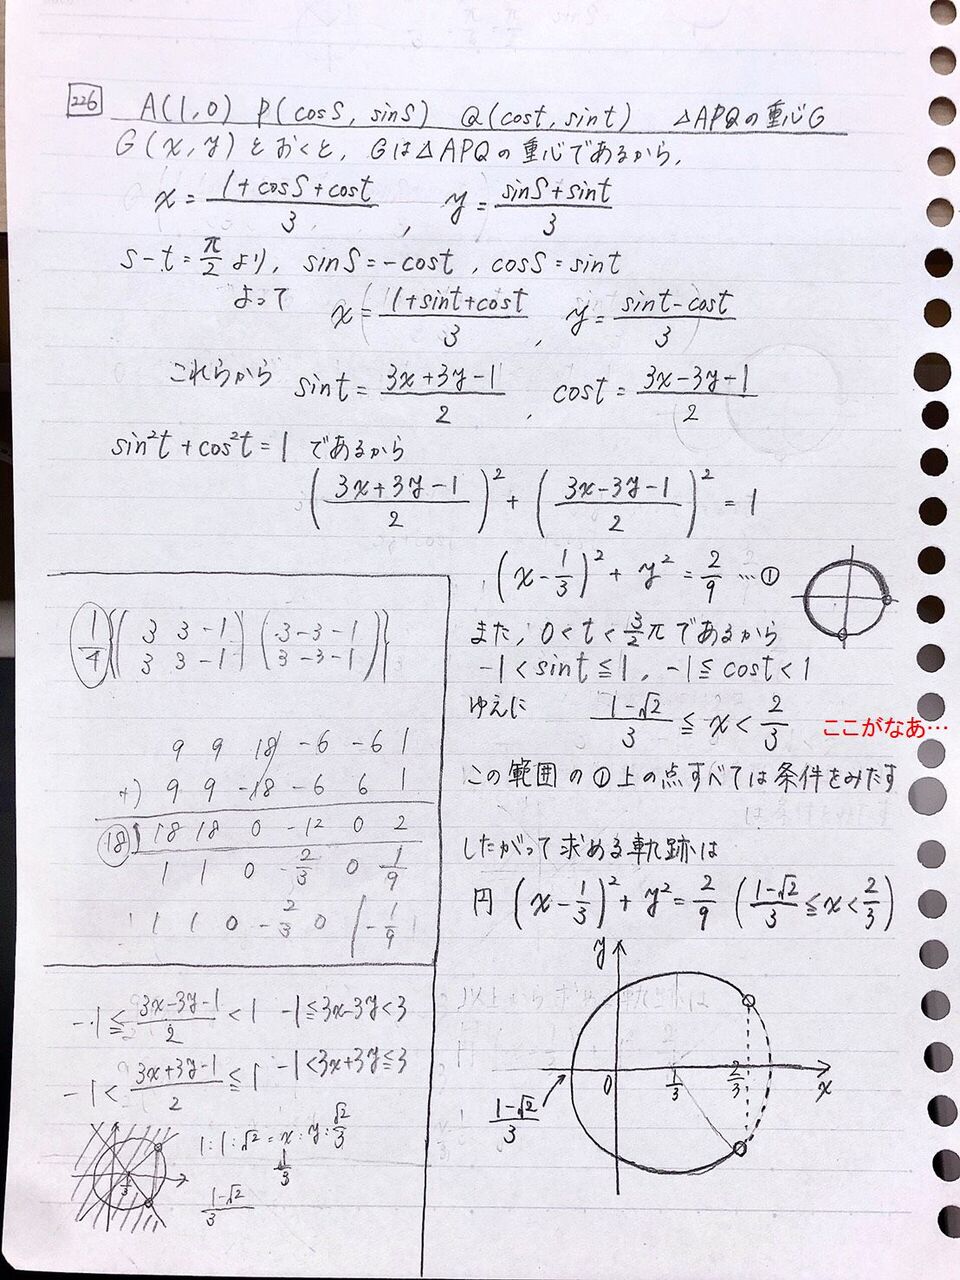 226 A(1,0) P(cosS, sinS) Q(cost, sint) △APQの重心G
G(x,y)とおくと, Gは△APQの重心であるから,
x=(1+cosS+cost)/3, y=(sinS+sint)/3
s-t=π/2より, sinS=-cost, cosS=sint
よって x=(1+sint+cost)/3, y=(sint-cost)/3
これらから sint=(3x+3y-1)/2, cost=(3x-3y-1)/2
sin²t+cos²t=1 であるから
((3x+3y-1)/2)²+((3x-3y-1)/2)²=1
(x-1/3)²+y²=2/9 …①
また, 0<t<3/2πであるから
-1<sint≦1, -1≦cost<1
ゆえに (1-√2)/3≦x<2/3
ここがなあ…
この範囲の①上の点すべては条件をみたす
したがって求める軌跡は
円 (x-1/3)²+y²=2/9 ((1-√2)/3≦x<2/3)
y
0 1/3 2/3 x
(1-√2)/3
1/4{(3 3 -1) (3 -3 -1)
3 3 -1) (3 -3 -1)}
9 9 18 -6 -6 1
+) 9 9 -18 -6 6 1
18) 18 18 0 -12 0 2
1 1 0 -2/3 0 1/9
1 1 0 -2/3 0 -1/9
-1≦(3x-3y-1)/2<1 -1≦3x-3y<3
-1<(3x+3y-1)/2≦1 -1<3x+3y≦3
1:1:√2=x:y:√2/3
1/3
1/3
(1-√2)/3